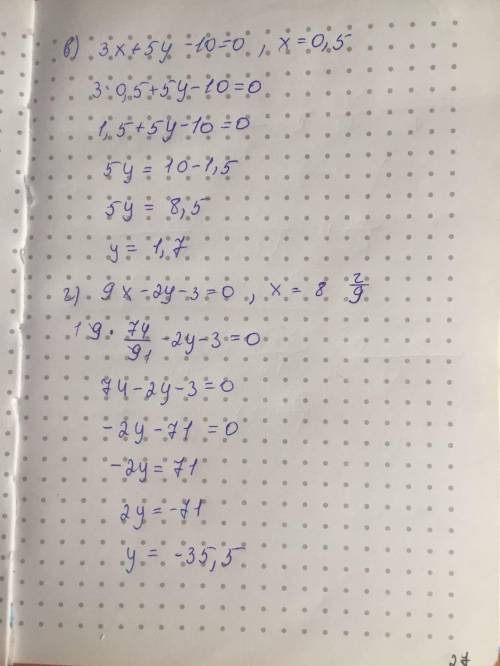 в) 3x+5y-10=0, x=0,5
3·0,5+5y-10=0
1,5+5y-10=0
5y = 10-1,5
5y = 8,5
y = 1,7
г) 9x-2y-3=0, x = 8 2/9
1 9 · 74/9 1 -2y-3=0
74-2y-3=0
-2y-71=0
-2y=71
2y=-71
y = -35,5
27